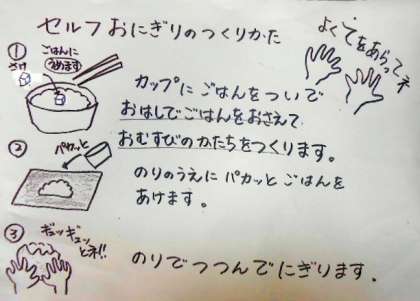 セルフおにぎりのつくりかた
よくてをあらってネ
①
さけ
ごはんに
うめます
カップにごはんをついで
おはしでごはんをおさえて
おむすびのかたちをつくります。
②
パカッと
のりのうえにパカッとごはんを
あけます。
③
ギュッギュッ
とネ!!
のりでつつんでにぎります.